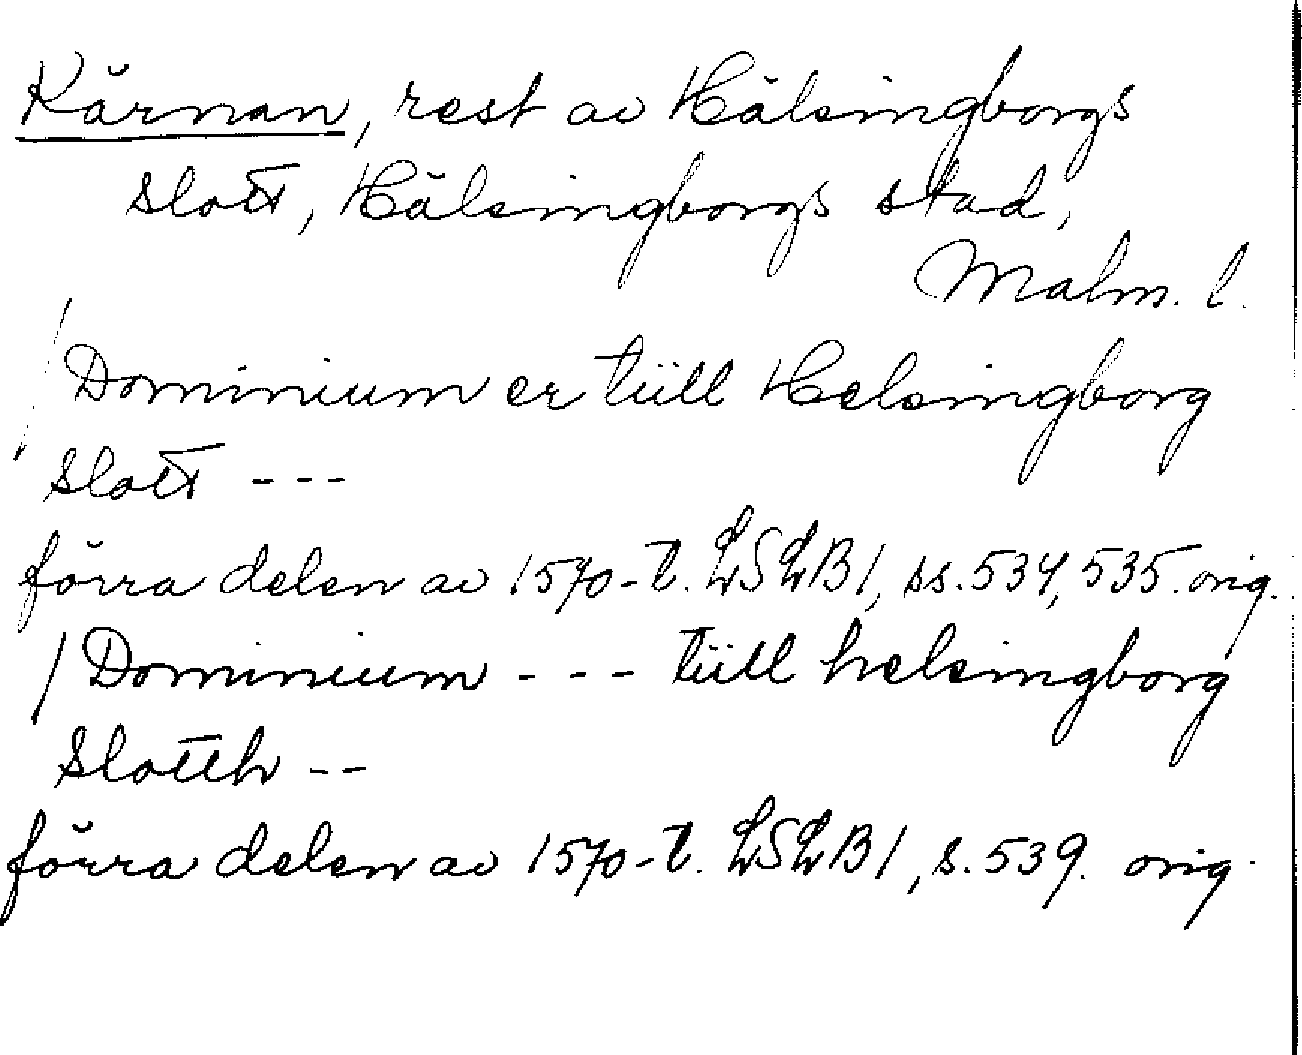 Kärnan, rest av Hälsingborgs
slott, Hälsingborgs stad,
Malm. l.
/Dominium er tüll Helsingborg
Slott ---
förra delen av 1570-t. LSLB1, ss. 534, 535. orig.
/Dominium --- tüll helsingborg
Slotth --
förra delen av 1570-t. LSLB1, s. 539. orig.